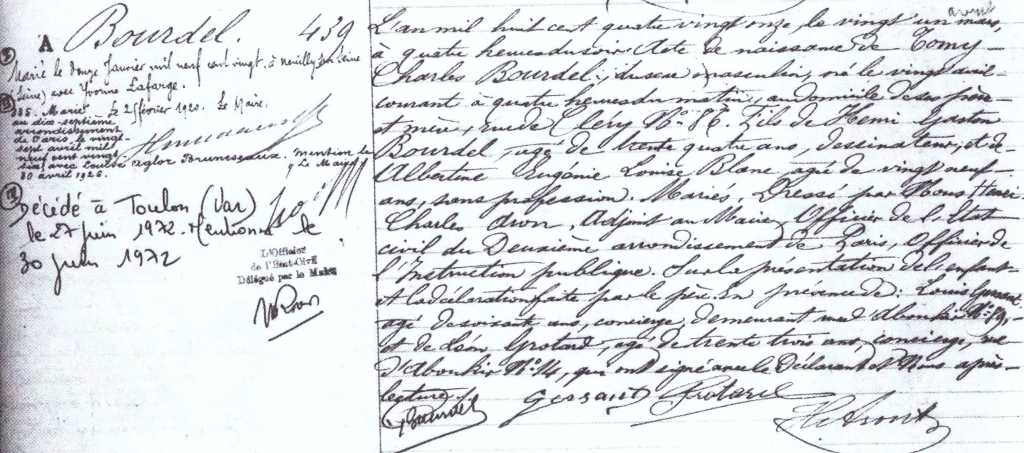 A Bourdel. 439
① Marié le douze Janvier mil neuf cent vingt, à Neuilly sur Seine
(Seine) avec Yvonne Lafarge.
Le 2 février 1920. Le Maire.
② 385. Marié
au dix-septième
arrondissement
de Paris, le vingt
sept avril mil
neuf cent vingt
six avec Louise
Brunesseaux. Mention le
30 avril 1926. Le Maire
③ Décédé à Toulon (Var)
le 27 juin 1972. Mentionné le
30 juin 1972
L'Officier
de l'Etat-Civil
Délégué par le Maire
avril
L'an mil huit cent quatre vingt onze, le vingt un mars,
à quatre heures du soir Acte de naissance de Tomy
Charles Bourdel, du sexe masculin, né le vingt avril
courant à quatre heures du matin, au domicile de ses père
et mère, rue de Cléry No 86. Fils de Henri Gaston
Bourdel, agé de trente quatre ans, dessinateur, et de
Albertine Eugenie Louise Blanc agée de vingt neuf
ans, sans profession. Mariés. Dressé par Nous Henri
Charles Aron, Adjoint au Maire, Officier de l'Etat
civil du Deuxième arrondissement de Paris, Officier de
l'Instruction publique. Sur la présentation de l'enfant
et la déclaration faite par le père. En présence de: Louis
agé de soixante ans, concierge, demeurant rue d'Aboukir
et de Léon Protard, agé de trente trois ans, concierge, rue
d'Aboukir No 14, qui ont signé avec le déclarant et Nous après
lecture.
Bourdel Protard